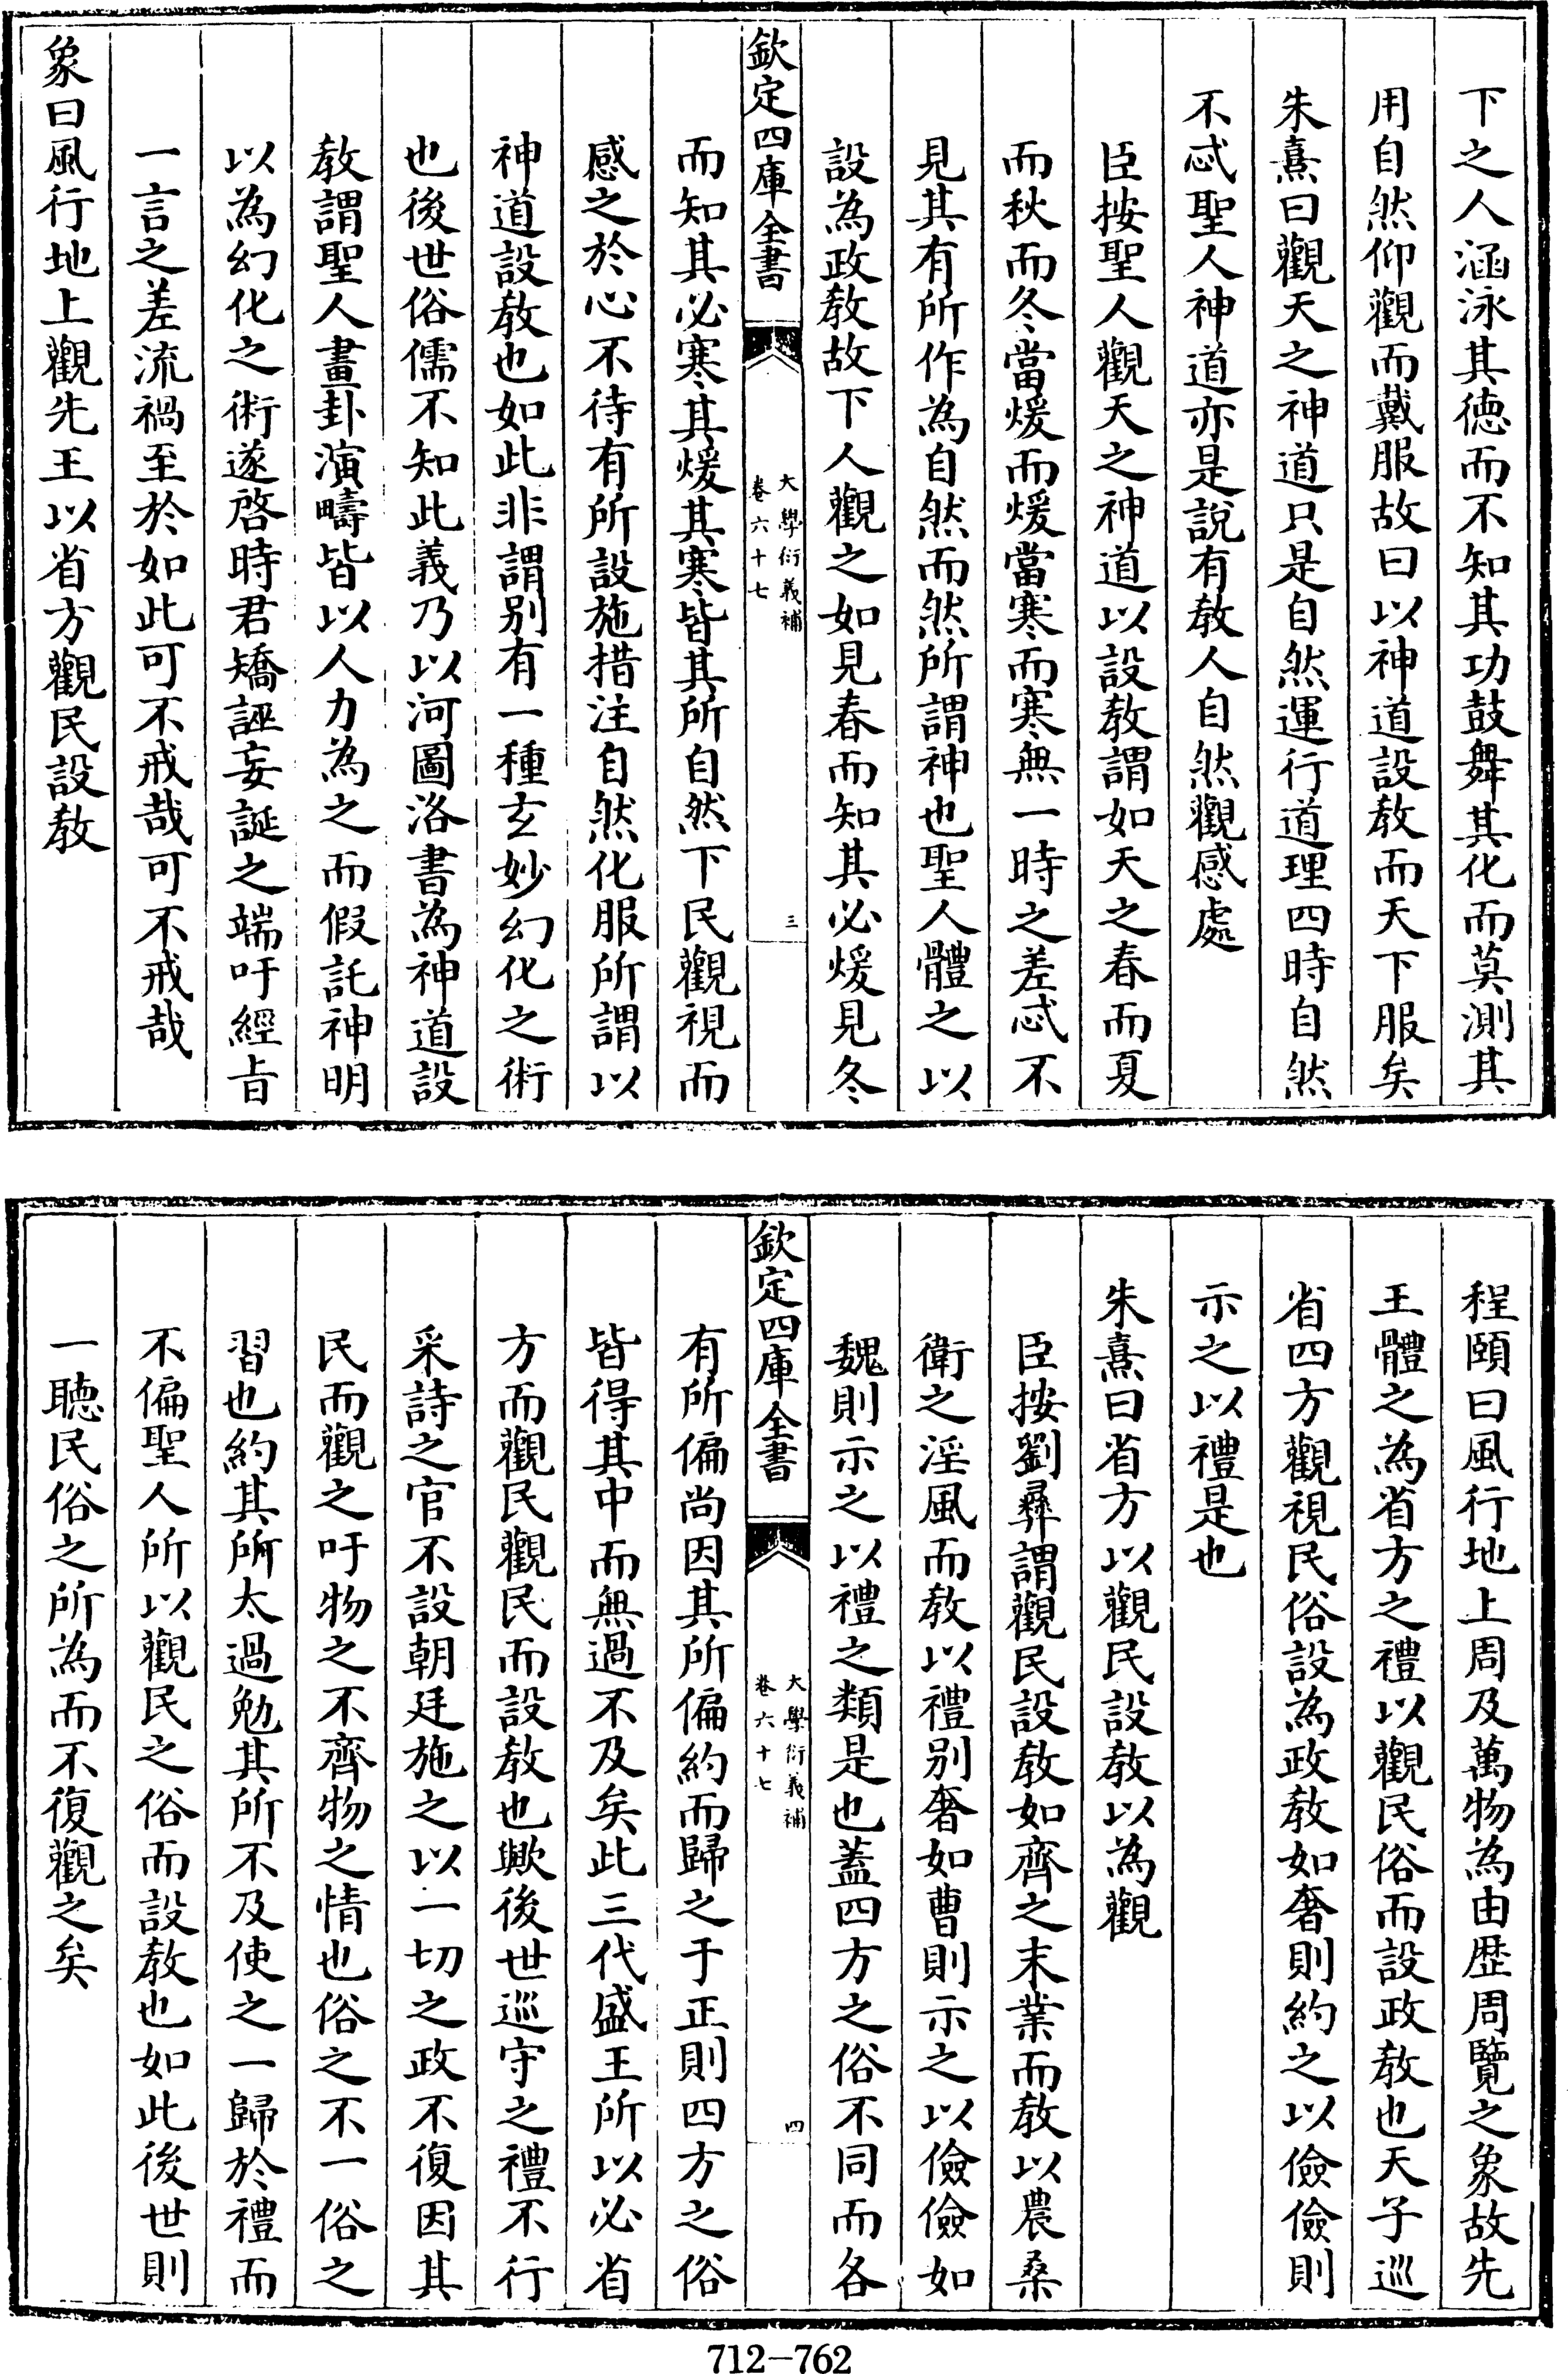 下之人涵泳其德而不知其功鼓舞其化而莫測其
用自然仰觀而戴服故曰以神道設教而天下服矣
朱熹曰觀天之神道只是自然運行道理四時自然
不忒聖人神道亦是說有教人自然觀感處
臣按聖人觀天之神道以設教謂如天之春而夏
而秋而冬當煖而煖當寒而寒無一時之差忒不
見其有所作為自然而然所謂神也聖人體之以
設為政教故下人觀之如見春而知其必煖見冬
欽定四庫全書
大學衍義補
卷六十七
三
而知其必寒其煖其寒皆其所自然下民觀視而
感之於心不待有所設施措注自然化服所謂以
神道設教也如此非謂别有一種玄妙幻化之術
也後世俗儒不知此義乃以河圖洛書為神道設
教謂聖人畫卦演疇皆以人力為之而假託神明
以為幻化之術遂啓時君矯誣妄誕之端吁經㫖
一言之差流禍至於如此可不戒哉可不戒哉
象曰風行地上觀先王以省方觀民設教
程頤曰風行地上周及萬物為由歴周覽之象故先
王體之為省方之禮以觀民俗而設政教也天子巡
省四方觀視民俗設為政教如奢則約之以儉儉則
示之以禮是也
朱熹曰省方以觀民設教以為觀
臣按劉彞謂觀民設教如齊之末業而教以農桑
衛之淫風而教以禮别奢如曹則示之以儉儉如
魏則示之以禮之類是也蓋四方之俗不同而各
欽定四庫全書
大學衍義補
卷六十七
四
有所偏尚因其所偏約而歸之于正則四方之俗
皆得其中而無過不及矣此三代盛王所以必省
方而觀民觀民而設教也歟後世巡守之禮不行
采詩之官不設朝廷施之以一切之政不復因其
民而觀之吁物之不齊物之情也俗之不一俗之
習也約其所太過勉其所不及使之一歸於禮而
不偏聖人所以觀民之俗而設教也如此後世則
一聽民俗之所為而不復觀之矣
712-762